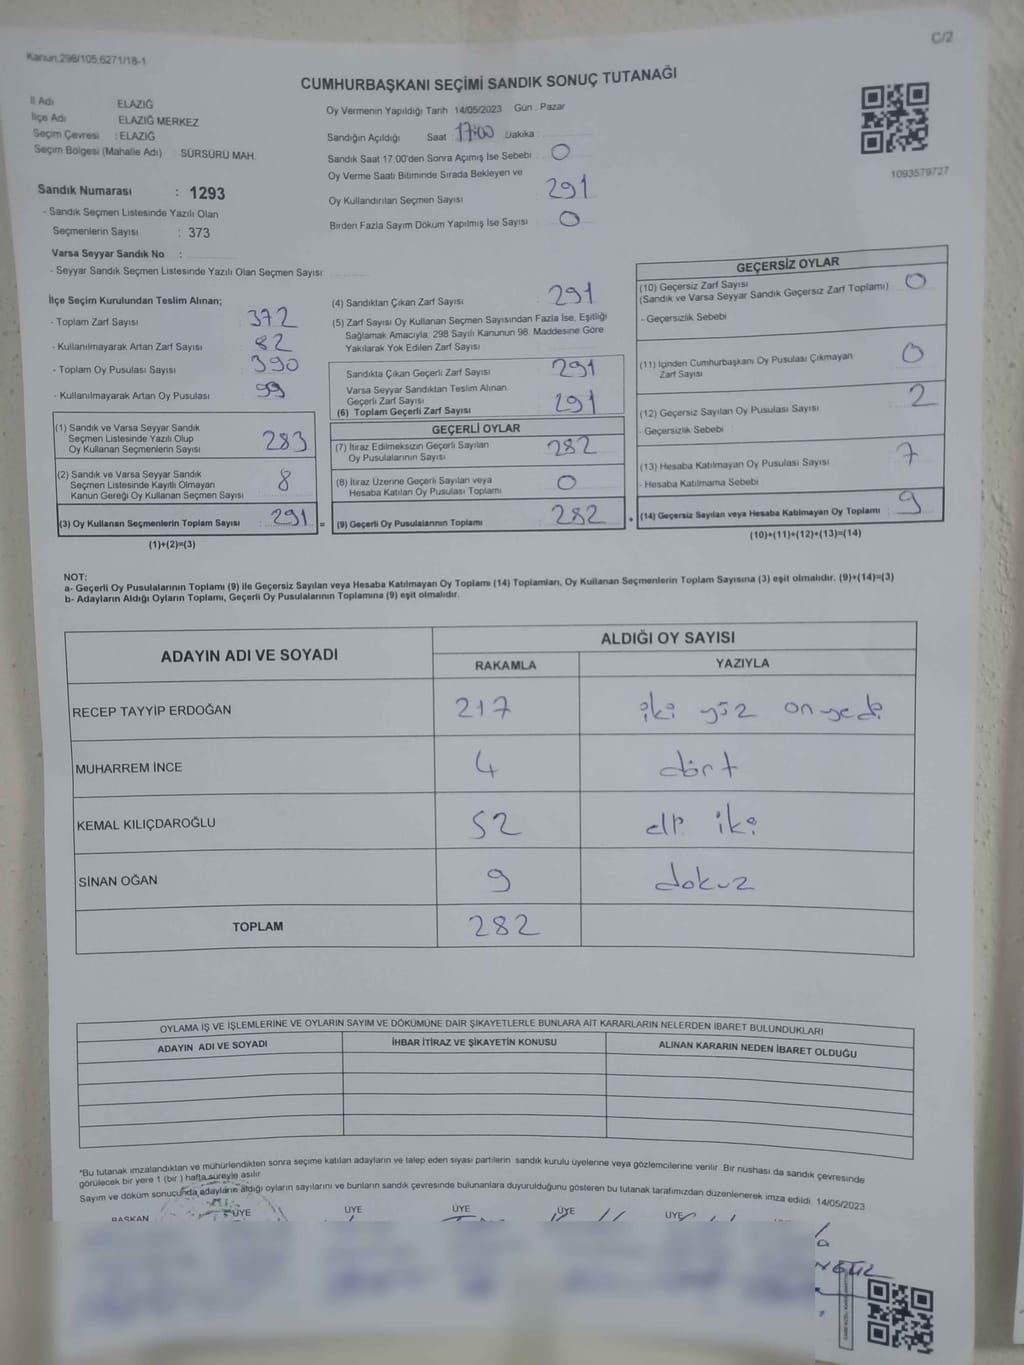 Kanun.298/105,6271/18-1
C/2
CUMHURBAŞKANI SEÇİMİ SANDIK SONUÇ TUTANAĞI
İl Adı ELAZIĞ
İlçe Adı ELAZIĞ MERKEZ
Seçim Çevresi : ELAZIĞ
Seçim Bölgesi (Mahalle Adı) SÜRSÜRÜ MAH.
Sandık Numarası : 1293
- Sandık Seçmen Listesinde Yazılı Olan
Seçmenlerin Sayısı : 373
Varsa Seyyar Sandık No :
- Seyyar Sandık Seçmen Listesinde Yazılı Olan Seçmen Sayısı
Oy Vermenin Yapıldığı Tarih 14/05/2023 Gün : Pazar
Sandığın Açıldığı Saat 17:00 Dakika
Sandık Saat 17.00'den Sonra Açımış İse Sebebi 0
Oy Verme Saati Bitiminde Sırada Bekleyen ve
Oy Kullandırılan Seçmen Sayısı 291
Birden Fazla Sayım Döküm Yapılmış İse Sayısı 0
1093579727
İlçe Seçim Kurulundan Teslim Alınan;
- Toplam Zarf Sayısı 372
- Kullanılmayarak Artan Zarf Sayısı 82
- Toplam Oy Pusulası Sayısı 390
- Kullanılmayarak Artan Oy Pusulası 99
(1) Sandık ve Varsa Seyyar Sandık
Seçmen Listesinde Yazılı Olup
Oy Kullanan Seçmenlerin Sayısı 283
(2) Sandık ve Varsa Seyyar Sandık
Seçmen Listesinde Kayıtlı Olmayan
Kanun Gereği Oy Kullanan Seçmen Sayısı 8
(3) Oy Kullanan Seçmenlerin Toplam Sayısı : 291 =
(1)+(2)=(3)
(4) Sandıktan Çıkan Zarf Sayısı 291
(5) Zarf Sayısı Oy Kullanan Seçmen Sayısından Fazla İse, Eşitliği
Sağlamak Amacıyla, 298 Sayılı Kanunun 98. Maddesine Göre
Yakılarak Yok Edilen Zarf Sayısı
Sandıkta Çıkan Geçerli Zarf Sayısı 291
Varsa Seyyar Sandıktan Teslim Alınan
Geçerli Zarf Sayısı
(6) Toplam Geçerli Zarf Sayısı 291
GEÇERLİ OYLAR
(7) İtiraz Edilmeksizin Geçerli Sayılan
Oy Pusulalarının Sayısı 282
(8) İtiraz Üzerine Geçerli Sayılan veya
Hesaba Katılan Oy Pusulası Toplamı 0
(9) Geçerli Oy Pusulalarının Toplamı 282 +
GEÇERSİZ OYLAR
(10) Geçersiz Zarf Sayısı
(Sandık ve Varsa Seyyar Sandık Geçersiz Zarf Toplamı) 0
- Geçersizlik Sebebi
(11) İçinden Cumhurbaşkanı Oy Pusulası Çıkmayan
Zarf Sayısı 0
(12) Geçersiz Sayılan Oy Pusulası Sayısı 2
- Geçersizlik Sebebi
(13) Hesaba Katılmayan Oy Pusulası Sayısı 7
- Hesaba Katılmama Sebebi
(14) Geçersiz Sayılan veya Hesaba Katılmayan Oy Toplamı 9
(10)+(11)+(12)+(13)=(14)
NOT:
a- Geçerli Oy Pusulalarının Toplamı (9) ile Geçersiz Sayılan veya Hesaba Katılmayan Oy Toplamı (14) Toplamları, Oy Kullanan Seçmenlerin Toplam Sayısına (3) eşit olmalıdır. (9)+(14)=(3)
b- Adayların Aldığı Oyların Toplamı, Geçerli Oy Pusulalarının Toplamına (9) eşit olmalıdır.
ADAYIN ADI VE SOYADI ALDIĞI OY SAYISI
RAKAMLA YAZIYLA
RECEP TAYYİP ERDOĞAN 217 iki yüz onyedi
MUHARREM İNCE 4 dört
KEMAL KILIÇDAROĞLU 52 elli iki
SİNAN OĞAN 9 dokuz
TOPLAM 282
OYLAMA İŞ VE İŞLEMLERİNE VE OYLARIN SAYIM VE DÖKÜMÜNE DAİR ŞİKAYETLERLE BUNLARA AİT KARARLARIN NELERDEN İBARET BULUNDUKLARI
ADAYIN ADI VE SOYADI İHBAR İTİRAZ VE ŞİKAYETİN KONUSU ALINAN KARARIN NEDEN İBARET OLDUĞU
*Bu tutanak imzalandıktan ve mühürlendikten sonra seçime katılan adayların ve talep eden siyasi partilerin sandık kurulu üyelerine veya gözlemcilerine verilir. Bir nüshası da sandık çevresinde
görülecek bir yere 1 (bir) hafta süreyle asılır.
Sayım ve döküm sonucunda adayların aldığı oyların sayılarını ve bunların sandık çevresinde bulunanlara duyurulduğunu gösteren bu tutanak tarafımızdan düzenlenerek imza edildi. 14/05/2023
BAŞKAN ÜYE ÜYE ÜYE ÜYE ÜYE